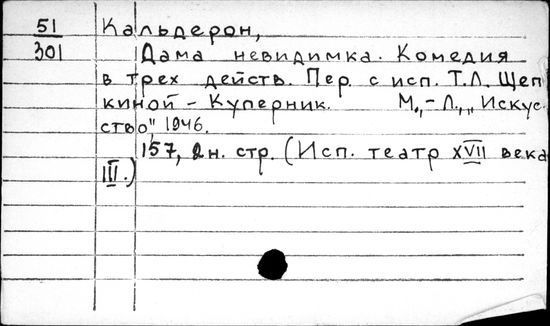 51 Кальдерон,
301 Дама невидимка. Комедия
в трех действ. Пер. с исп. Т.Л. Щеп
киной - Куперник. М.,-Л., „Искус-
ство", 1946.
157, 2 н. стр. (Исп. театр XVII века
III.)